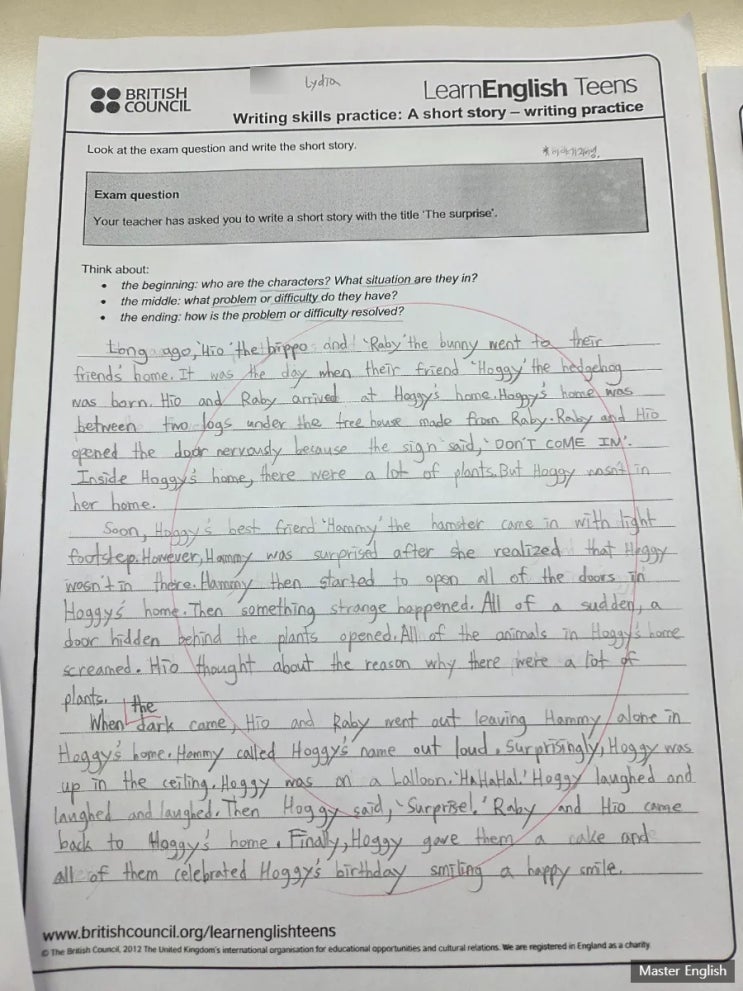 BRITISH
COUNCIL
Lydia
LearnEnglish Teens
Writing skills practice: A short story – writing practice
Look at the exam question and write the short story.
Exam question
Your teacher has asked you to write a short story with the title 'The surprise'.
Think about:
• the beginning: who are the characters? What situation are they in?
• the middle: what problem or difficulty do they have?
• the ending: how is the problem or difficulty resolved?
Long ago, 'Hio' the hippo and 'Raby' the bunny went to their
friends' home. It was the day when their friend 'Hoggy' the hedgehog
was born. Hio and Raby arrived at Hoggy's home. Hoggy's home was
between two logs under the tree house made from Raby. Raby and Hio
opened the door nervously because the sign said, 'DON'T COME IN'.
Inside Hoggy's home, there were a lot of plants. But Hoggy wasn't in
her home.
Soon, Hoggy's best friend 'Hammy' the hamster came in with light
footstep. However, Hammy was surprised after she realized that Hoggy
wasn't in there. Hammy then started to open all of the doors in
Hoggy's home. Then something strange happened. All of a sudden, a
door hidden behind the plants opened. All of the animals in Hoggy's home
screamed. Hio thought about the reason why there were a lot of
plants.
the
When dark came, Hio and Raby went out leaving Hammy alone in
Hoggy's home. Hammy called Hoggy's name out loud. Surprisingly, Hoggy was
up in the ceiling. Hoggy was on a balloon. 'HaHaHa!' Hoggy laughed and
laughed and laughed. Then Hoggy said, 'Surprise!' Raby and Hio came
back to Hoggy's home. Finally, Hoggy gave them a cake and
all of them celebrated Hoggy's birthday smiling a happy smile.
www.britishcouncil.org/learnenglishteens
© The British Council, 2012 The United Kingdom's international organisation for educational opportunities and cultural relations. We are registered in England as a charity.
Master English